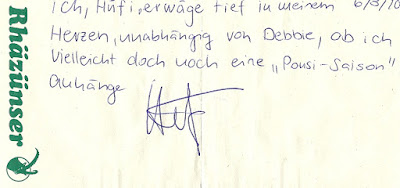 Rhäzünser
ich, Hüfi, erwäge tief in meinem 6/3/10
Herzen, unabhängig von Debbie, ob ich
vielleicht doch noch eine „Pousi-Saison"
anhänge
Hüfi